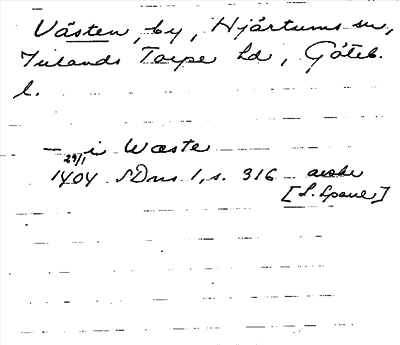 Västen, by, Hjärtums sn,
Inlands Torpe hd, Göteb.
l.
— i Wæste
29/1
1404 SDns 1, s. 316